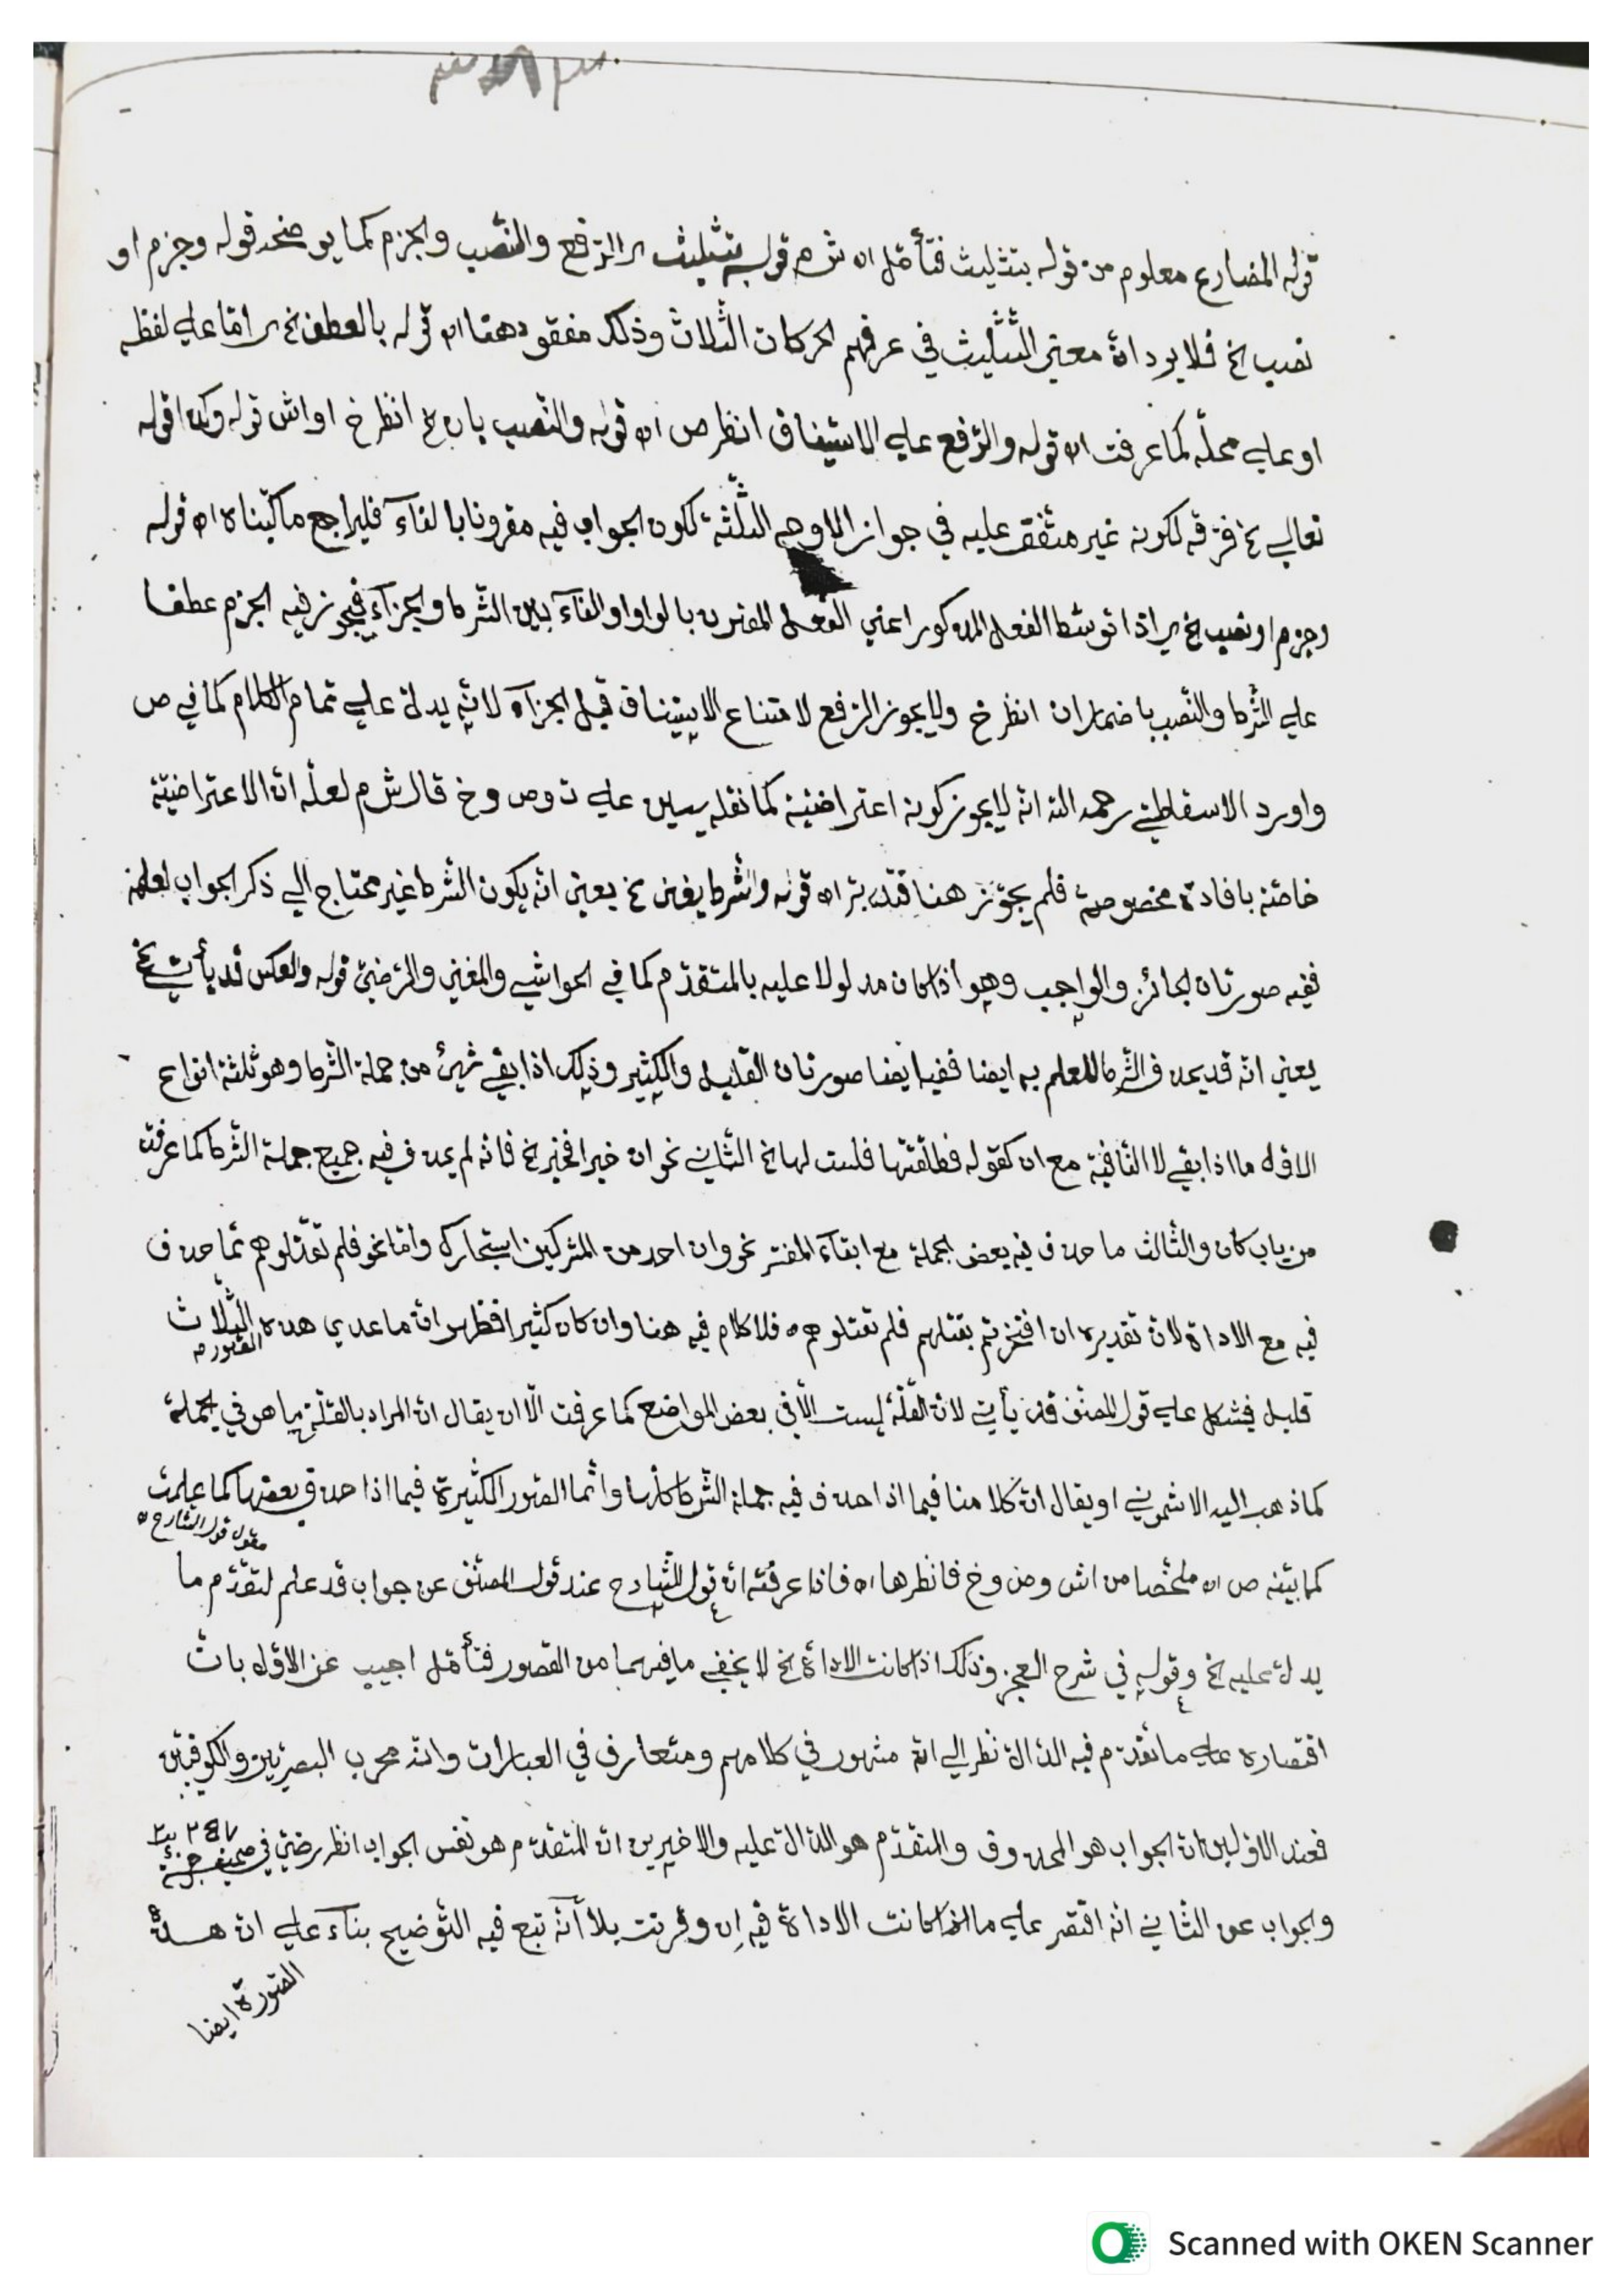 قوله المضارع معلوم من قوله بتثليث فتأمّل اه ش م قوله بتثليث اي الرّفع والنّصب والجزم كما يوضحه قوله وجزم او
نصب الخ فلا يرد انّ معنى التّثليث في عرفهم الحركات الثّلاث وذلك مفقود ههنا اه قوله بالعطف الخ اي امّا على لفظه
او على محلّه كما عرفت اه قوله والرّفع على الاستيناف انظر ص اه قوله والنّصب بان الخ انظر خ او اش قوله وكذا قوله
تعالى الخ فرّقه لكونه غير متّفق عليه في جواز الاوجه الثّلثة لكون الجواب فيه مقرونا بالفآء فليراجع ما كتبناه اه قوله
وجزم او نصب الخ اي اذا توسّط الفعل المذكور اعني الفعل المقرون بالواو او الفآء بين الشّرط والجزآء فيجوز فيه الجزم عطفا
على الشّرط والنّصب باضمار ان انظر خ ولا يجوز الرّفع لامتناع الاستيناف قبل الجزآء لانّه يدلّ على تمام الكلام كما في ص
واورد الاسقاطيّ رحمه الله انّه لا يجوز كونه اعتراضيّة كما نقله يسين على ت وص وخ قال ش م لعلّه انّ الاعتراضيّة
خاصّة بافادة مخصوصة فلم يجوّز هنا فتدبّر اه قوله والشّرط يغني الخ يعني انّه يكون الشّرط غير محتاج الى ذكر الجواب لعلمه
ففيه صورتان الجائز والواجب وهو اذا كان مدلولا عليه بالمتقدّم كما في الحواشي والمغني والرّضيّ قوله والعكس قد يأتي الخ
يعني انّه قد يحذف الشّرط للعلم به ايضا ففيه ايضا صورتان القليل والكثير وذلك اذا بقي شيئ من جملة الشّرط وهو ثلثة انواع
الاوّل ما اذا بقي لا النّافية مع ان كقوله فطلّقها فلست لها الخ الثّاني نحو ان خيرا فخير الخ فانّه لم يحذف فيه جميع جملة الشّرط كما عرفت
من باب كان والثّالث ما حذف فيه بعض الجملة مع ابقآء المفسّر نحو وان احد من المشركين استجارك وامّا نحو فلم تقتلوهم ممّا حذف
فيه مع الاداة لانّ تقديره ان افتخرتم بقتلهم فلم تقتلوهم ه فلا كلام فيه هنا وان كان كثيرا فظهر انّ ما عدى هذه الثّلاث
الصّور م
قليل فيشكل على قول المصنّف قد يأتي لانّ القلّة ليست الّا في بعض المواضع كما عرفت الّا ان يقال انّ المراد بالقلّة ما هو في الجملة
كما ذهب اليه الاشمونيّ او يقال انّ كلامنا فيما اذا حذف فيه جملة الشّرط كلّها وانّما الصّور الكثيرة فيما اذا حذف بعضها كما علمت
مقول قول الشّارح ه
كما بيّنه ص اه ملخّصا من اش وص وخ فانظرها اه فاذا عرفته انّ قول الشّارح عند قول المصنّف عن جواب قد علم لتقدّم ما
يدلّ عليه الخ وقوله في شرح العجز وذلك اذا كانت الاداة الخ لا يخفى ما فيهما من القصور فتأمّل اجيب عن الاوّل بانّ
اقتصاره على ما تقدّم فيه الدّالّ نظر الى انّه مشهور في كلامهم ومتعارف في العبارات وانّه محرب البصريّين والكوفيّين
فعند الاوّلين انّ الجواب هو المحذوف والمتقدّم هو الدّالّ عليه والاخيرين انّ المتقدّم هو نفس الجواب انظر رضيّ في صحيفة
والجواب عن الثّاني انّه اقتصر على ما اذا كانت الاداة فيه ان وقرنت بلا أنّه تبع فيه التّوضيح بنآء على انّ هذه
الصّورة ايضا